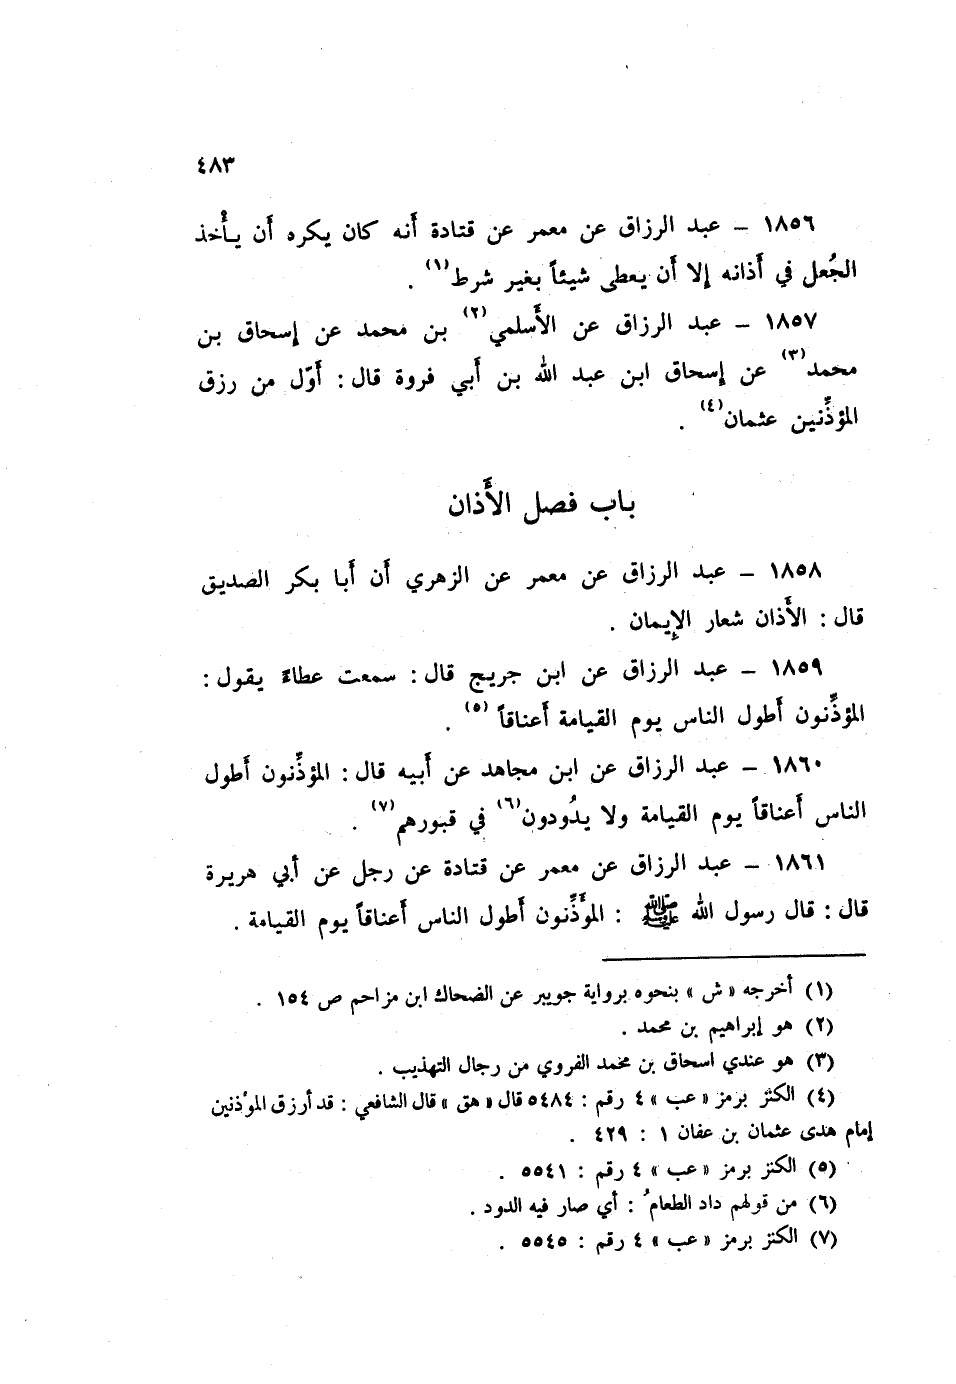 ٤٨٣
١٨٥٦ – عبد الرزاق عن معمر عن قتادة أَنه كان يكره أَن يأْخذ
الجُعل في أَذانه إلا أَن يعطى شيئاً بغير شرط(١) .
١٨٥٧ – عبد الرزاق عن الأَسلمي(٢) بن محمد عن إسحاق بن
محمد(٣) عن إسحاق ابن عبد الله بن أَبي فروة قال : أَوّل من رزق
المؤذِّنين عثمان(٤) .
باب فصل الأَذان
١٨٥٨ – عبد الرزاق عن معمر عن الزهري أَن أَبا بكر الصديق
قال : الأَذان شعار الإِيمان .
١٨٥٩ – عبد الرزاق عن ابن جريج قال : سمعت عطاءً يقول :
المؤذِّنون أَطول الناس يوم القيامة أَعناقاً (٥) .
١٨٦٠ – عبد الرزاق عن ابن مجاهد عن أَبيه قال : المؤذِّنون أَطول
الناس أَعناقاً يوم القيامة ولا يدُودون(٦) في قبورهم(٧) .
١٨٦١ – عبد الرزاق عن معمر عن قتادة عن رجل عن أبي هريرة
قال : قال رسول الله ﷺ : المؤَذِّنون أَطول الناس أَعناقاً يوم القيامة .
(١) أخرجه « ش » بنحوه برواية جويبر عن الضحاك ابن مزاحم ص ١٥٤ .
(٢) هو إبراهيم بن محمد .
(٣) هو عندي اسحاق بن محمد الفروي من رجال التهذيب .
(٤) الكنز برمز « عب » ٤ رقم : ٥٤٨٤ قال « هق » قال الشافعي : قد أرزق المؤذنين
إمام هدى عثمان بن عفان ١ : ٤٢٩ .
(٥) الكنز برمز « عب » ٤ رقم : ٥٥٤١ .
(٦) من قولهم داد الطعامُ : أي صار فيه الدود .
(٧) الكنز برمز « عب » ٤ رقم : ٥٥٤٥ .